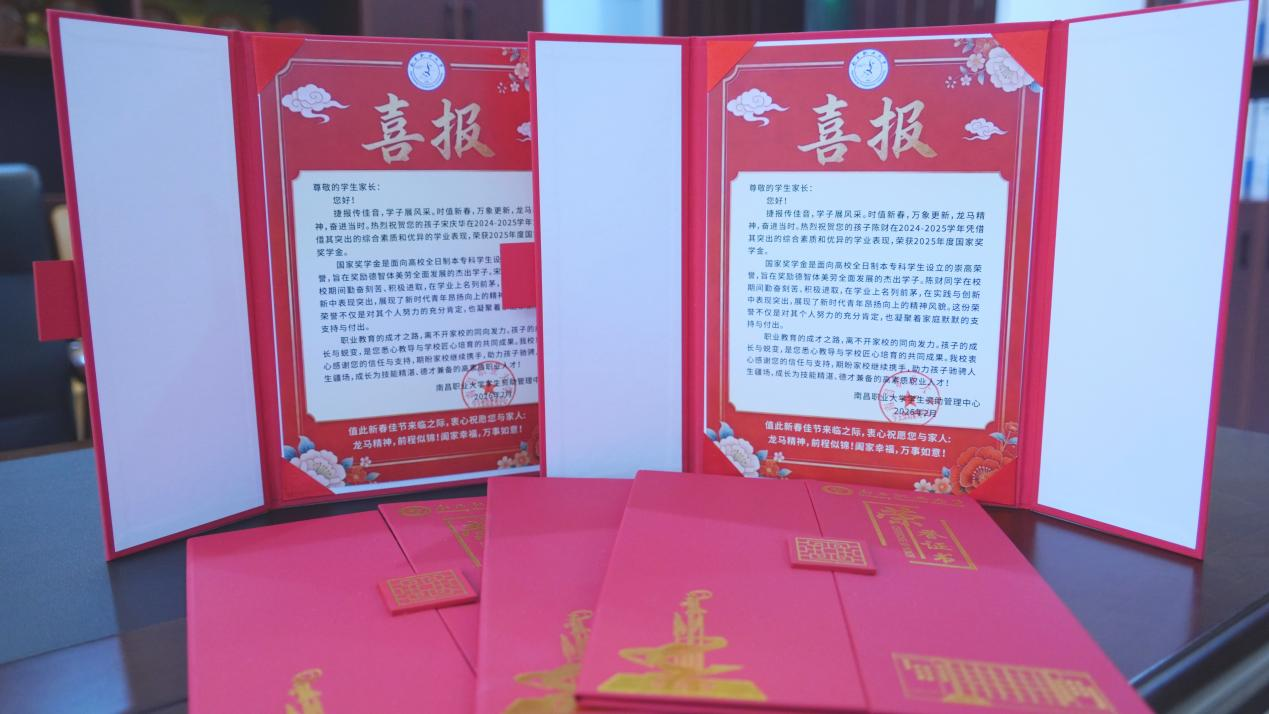 喜报
尊敬的学生家长：
您好！
捷报传佳音，学子展风采。时值新春，万象更新，龙马
神，奋进当时。热烈祝贺您的孩子宋庆华在2024-2025学年
借其突出的综合素质和优异的学业表现，荣获2025年度国
奖学金。
国家奖学金是面向高校全日制本专科学生设
誉，旨在奖励德智体美劳全面发展的杰出学子。宋
校期间勤奋刻苦、积极进取，在学业上名列前茅，
新中表现突出，展现了新时代青年昂扬向上的精
荣誉不仅是对其个人努力的充分肯定，也凝聚着
支持与付出。
职业教育的成才之路，离不开家校的同向发力。孩子的
长与蜕变，是您悉心教导与学校匠心培育的共同成果。我校
心感谢您的信任与支持，期盼家校继续携手，助力孩子驰骋
生疆场，成长为技能精湛、德才兼备的高素质职业人才！
南昌职业大学学生资助管理中
2026年2月
值此新春佳节来临之际，衷心祝愿您与家人：
龙马精神，前程似锦！阖家幸福，万事如意！
喜报
尊敬的学生家长：
您好！
捷报传佳音，学子展风采。时值新春，万象更新，龙马精
神，奋进当时。热烈祝贺您的孩子陈财在2024-2025学年凭借
其突出的综合素质和优异的学业表现，荣获2025年度国家奖
学金。
国家奖学金是面向高校全日制本专科学生设立的崇高荣
誉，旨在奖励德智体美劳全面发展的杰出学子。陈财同学在校
期间勤奋刻苦、积极进取，在学业上名列前茅，在实践与创新
中表现突出，展现了新时代青年昂扬向上的精神风貌。这份荣
誉不仅是对其个人努力的充分肯定，也凝聚着家庭默默的支
持与付出。
职业教育的成才之路，离不开家校的同向发力。孩子的成
长与蜕变，是您悉心教导与学校匠心培育的共同成果。我校衷
心感谢您的信任与支持，期盼家校继续携手，助力孩子驰骋人
生疆场，成长为技能精湛、德才兼备的高素质职业人才！
南昌职业大学学生资助管理中心
2026年2月
值此新春佳节来临之际，衷心祝愿您与家人：
龙马精神，前程似锦！阖家幸福，万事如意！
荣誉证书